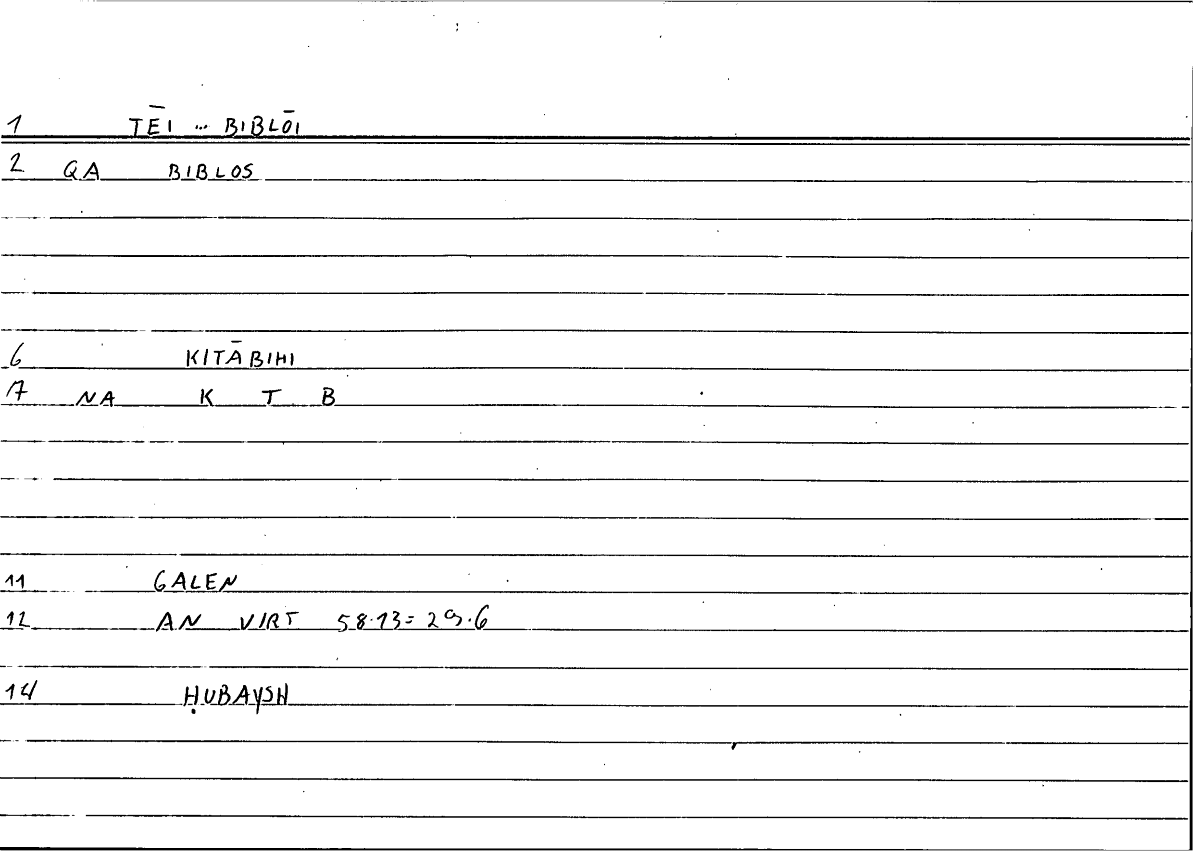 1 TĒI ... BIBLŌI
2 QA BIBLOS
6 KITĀBIHI
7 NA K T B
11 GALEN
12 AN VIRT 58.13=29.6
14 ḤUBAYSH